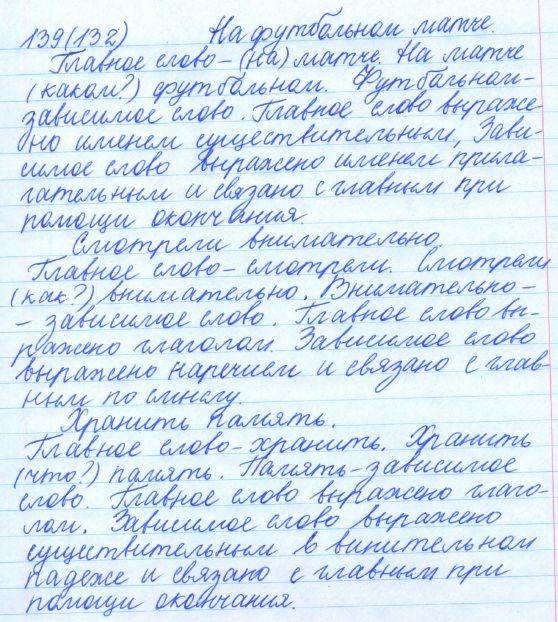 139(132) На футбольном матче.
Главное слово - (на) матче. На матче
(каком?) футбольном. Футбольном-
зависимое слово. Главное слово выраже-
но именем существительным, Зави-
симое слово выражено именем прила-
гательным и связано с главным при
помощи окончания.
Смотрели внимательно.
Главное слово - смотрели. Смотрели
(как?) внимательно. Внимательно -
- зависимое слово. Главное слово вы-
ражено глаголом. Зависимое слово
выражено наречием и связано с глав-
ным по смыслу.
Хранить память.
Главное слово - хранить. Хранить
(что?) память. Память - зависимое
слово. Главное слово выражено глаго-
лом. Зависимое слово выражено
существительным в винительном
падеже и связано с главным при
помощи окончания.